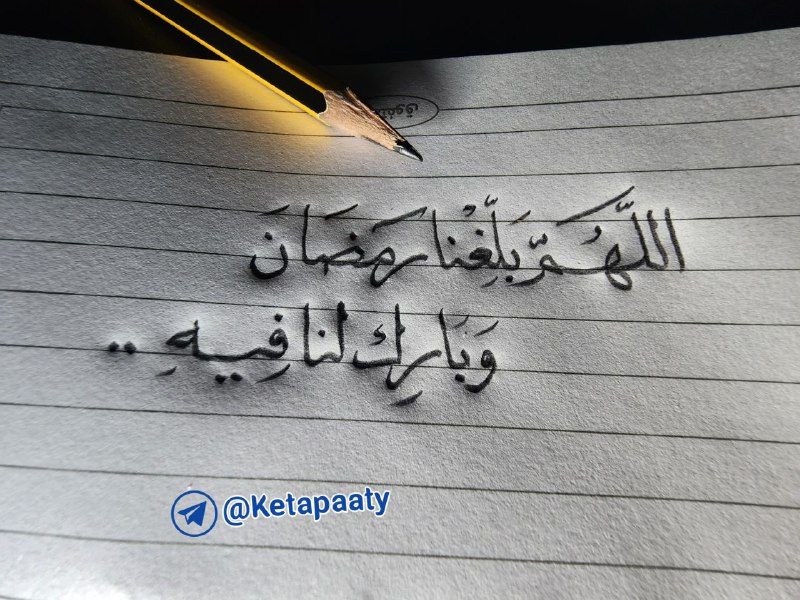 اللَّهُمَّ بَلِّغْنا رَمَضَانَ
وَبَارِك لنا فِيهِ ..
@Ketapaaty